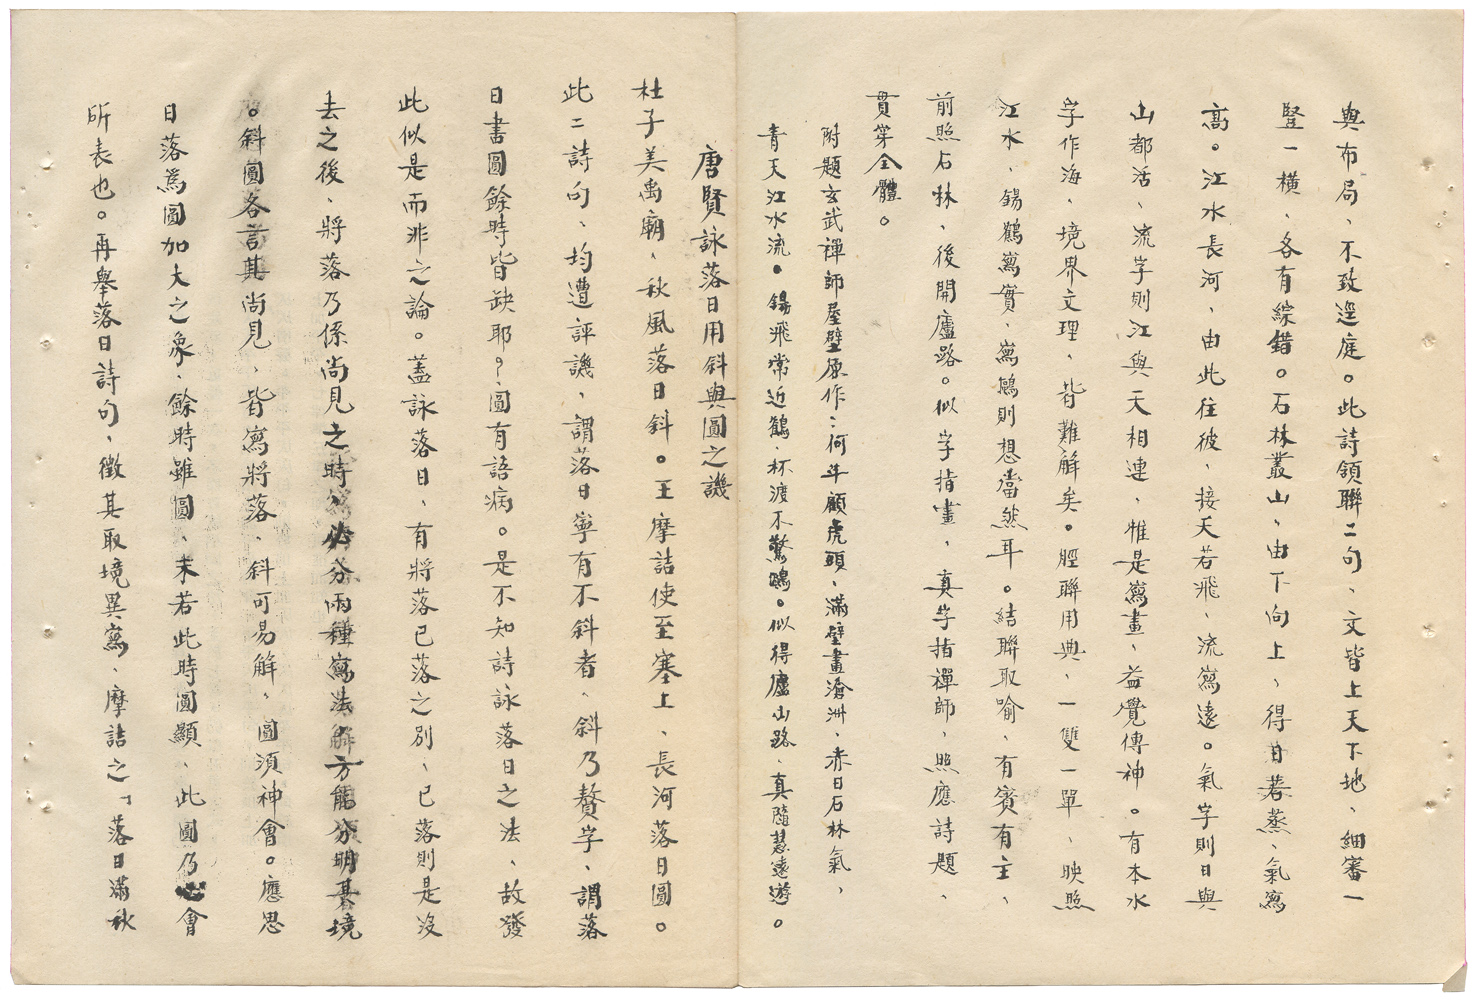 與布局、不致逕庭。此詩領聯二句、文皆上天下地、細審一
豎一橫、各有綜錯。石林叢山、由下向上、得日若蒸、氣寫
高。江水長河、由此往彼、接天若飛、流寫遠。氣字則日與
山都活、流字則江與天相連、惟是寫畫、益覺傳神。有本水
字作海、境界文理、皆難解矣。脛聯用典、一雙一單、映照
江水、錫鶴寫實、寫鷗則想當然耳。結聯取喻、有賓有主、
前照石林、後開廬路。似字指畫、真字指禪師、照應詩題、
貫穿全體。
附題玄武禪師屋壁原作：何年顧虎頭、滿壁畫滄洲、赤日石林氣、
青天江水流。錫飛常近鶴、杯渡不驚鷗。似得廬山路、真隨慧遠遊。
唐賢詠落日用斜與圓之譏
杜子美禹廟、秋風落日斜。王摩詰使至塞上、長河落日圓。
此二詩句、均遭評譏、謂落日寧有不斜者、斜乃贅字、謂落
日書圓餘時皆缺耶？圓有語病。是不知詩詠落日之法、故發
此似是而非之論。蓋詠落日、有將落已落之別、已落則是沒
去之後、將落乃係尚見之時、必分兩種寫法解方能分明其境
。斜圓各言其尚見、皆寫將落、斜可易解、圓須神會。應思
日落為圓加大之象、餘時雖圓、未若此時圓顯、此圓乃心會
所表也。再舉落日詩句、徵其取境異寫、摩詰之「落日滿秋